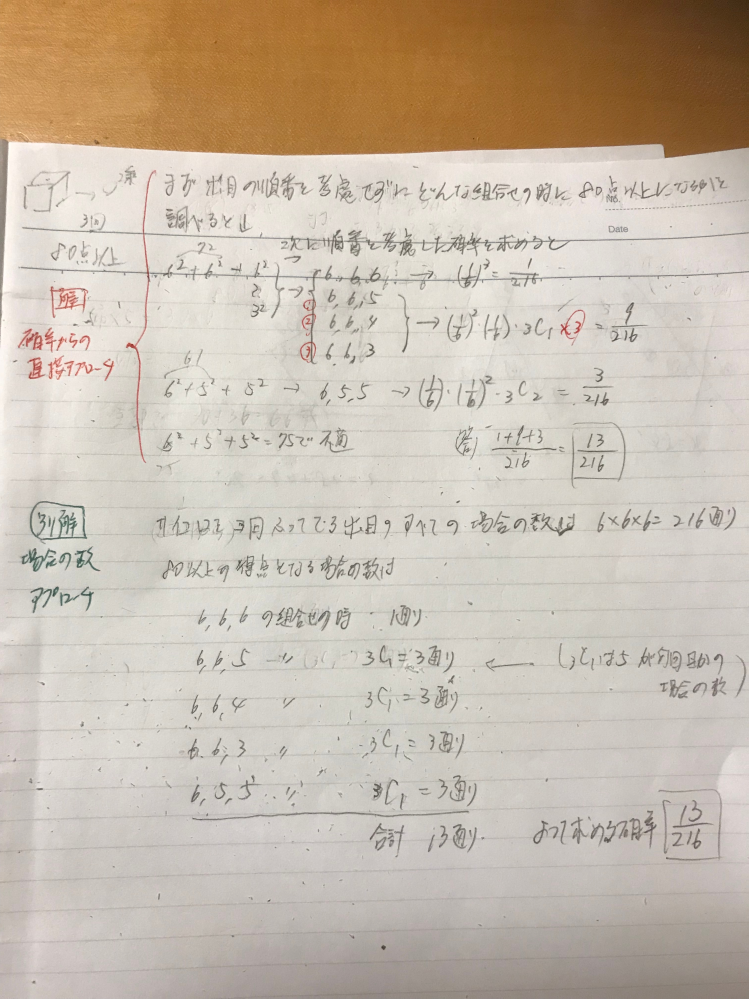 まず出目の順番を考慮せずにどんな組合せの時に80点以上になるかを
調べると
Date
3回
80点以上
次に順番を考慮した確率を求めると
72
6²+6²+6²
3²
6, 6, 6, → (1/6)³ = 1/216
① 6, 6, 5
② 6, 6, 4
③ 6, 6, 3
→ (1/6)²・(1/6)・₃C₁×3 = 9/216
解
確率からの
直接アプローチ
61
6²+5²+5² → 6, 5, 5 → (1/6)・(1/6)²・₃C₂ = 3/216
6²+5²+5²=75で不適
(答) 1+9+3/216 = 13/216
別解
場合の数
アプローチ
3回ふってでる出目のすべての場合の数は 6×6×6=216通り
80以上の得点となる場合の数は
6, 6, 6 の組合せの時 1通り
6, 6, 5 〃 ₃C₁=3通り ← (₃C₁は5が何回目かの
場合の数)
6, 6, 4 〃 ₃C₁=3通り
6, 6, 3 〃 ₃C₁=3通り
6, 5, 5 〃 ₃C₁=3通り
合計 13通り
よって求める確率 13/216